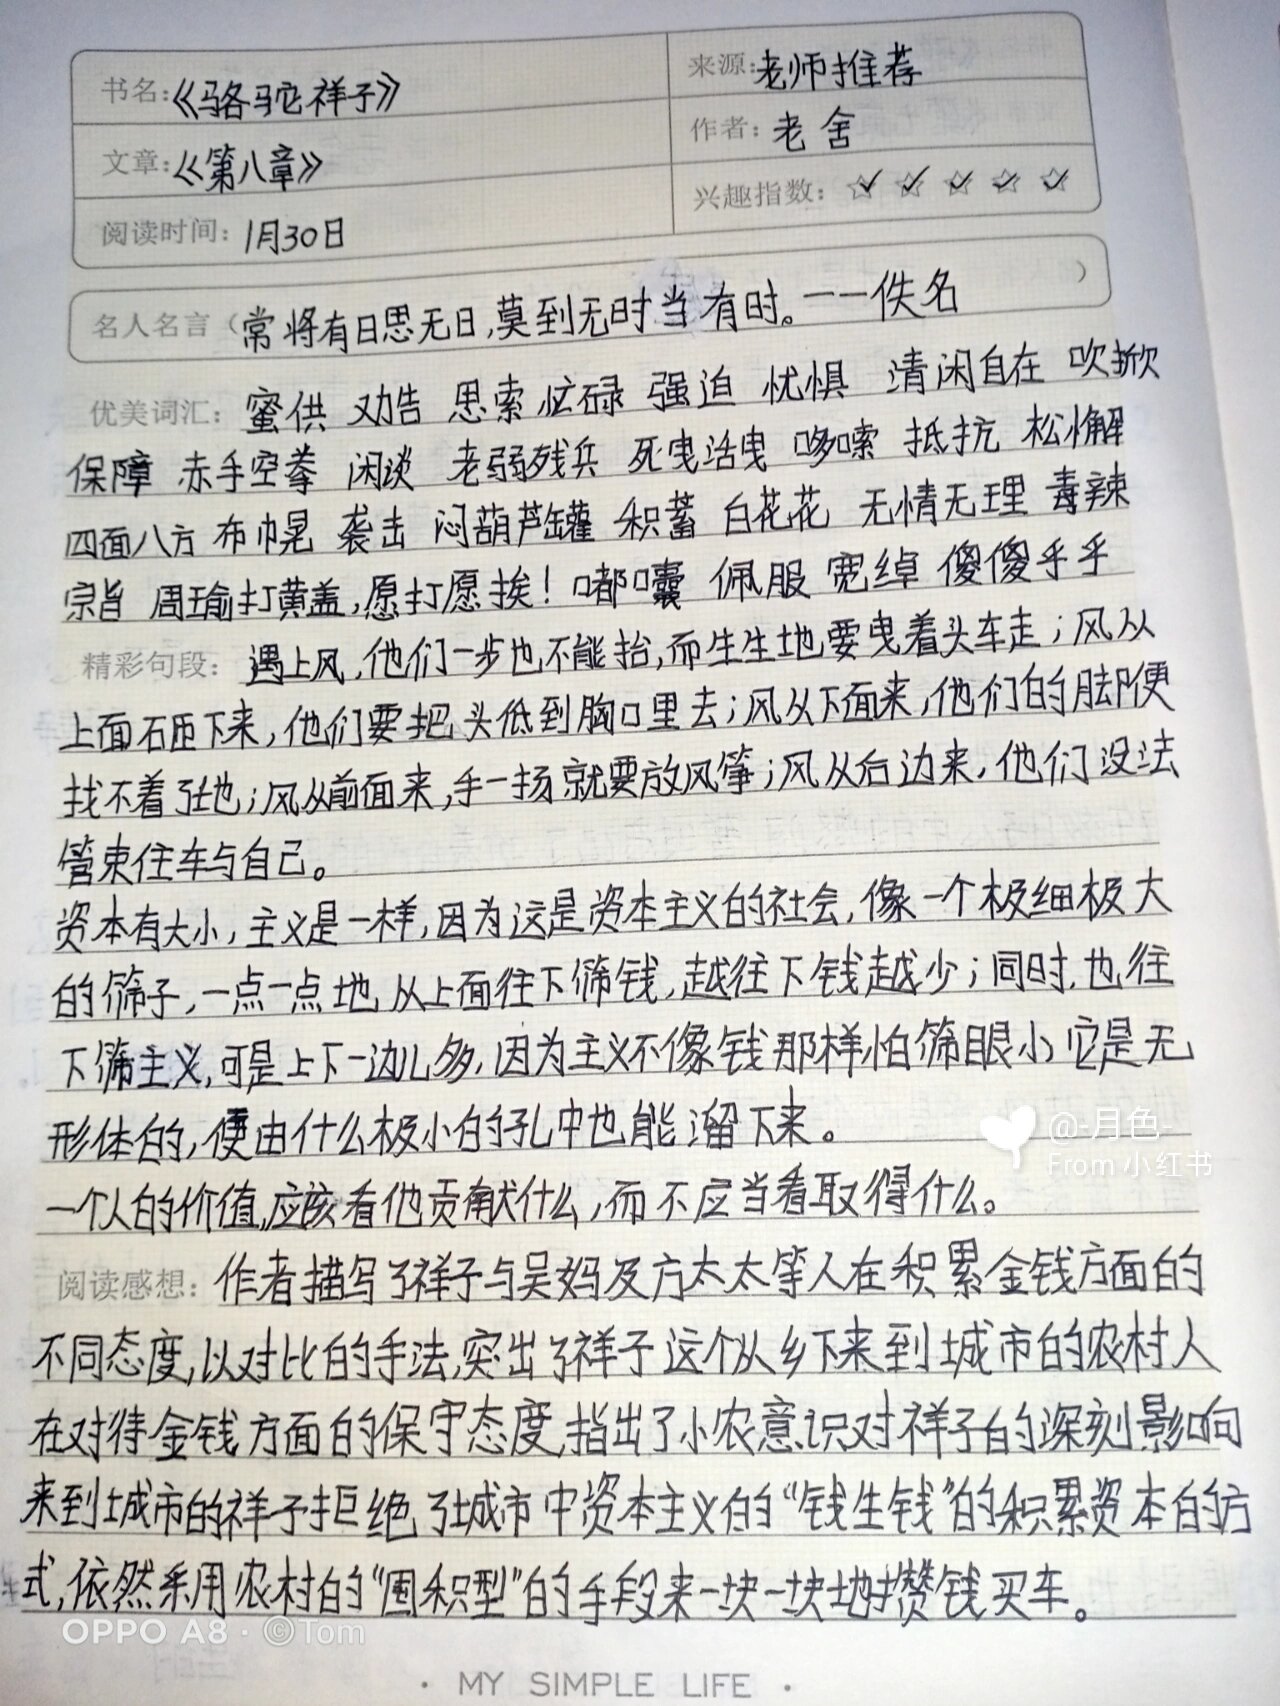 书名:《骆驼祥子》
来源:老师推荐
文章:《第八章》
作者:老舍
阅读时间:1月30日
兴趣指数:
名人名言(常将有日思无日,莫到无时当有时。——佚名)
优美词汇:蜜供 劝告 思索 忙碌 强迫 忧惧 清闲自在 吹掀
保障 赤手空拳 闲谈 老弱残兵 死曳活曳 哆嗦 抵抗 松懈
四面八方 布巾晃 袭击 闷葫芦罐 积蓄 白花花 无情无理 毒辣
宗旨 周瑜打黄盖,愿打愿挨! 嘟囔 佩服 宽绰 傻傻乎乎
精彩句段:遇上风,他们一步也不能抬,而生生地要曳着头车走;风从
上面砸下来,他们要把头低到胸口里去;风从下面来,他们的脚便
找不着了地;风从前面来,手一扬就要放风筝;风从后边来,他们没法
管束住车与自己。
资本有大小,主义是一样,因为这是资本主义的社会,像一个极细极大
的筛子,一点一点地从上面往下筛钱,越往下钱越少;同时,也往
下筛主义,可是上下一边儿多,因为主义不像钱那样怕筛眼小,它是无
形体的,便由什么极小的孔中也能溜下来。
一个人的价值,应该看他贡献什么,而不应当看取得什么。
阅读感想:作者描写了祥子与吴妈及方太太等人在积累金钱方面的
不同态度,以对比的手法,突出了祥子这个从乡下来到城市的农村人
在对待金钱方面的保守态度,指出了小农意识对祥子的深刻影响
来到城市的祥子拒绝了城市中资本主义的“钱生钱”的积累资本的方
式,依然采用农村的“囤积型”的手段来一块一块地攒钱买车。
@-月色-
From 小红书
OPPO A8 · ©Tom
· MY SIMPLE LIFE ·